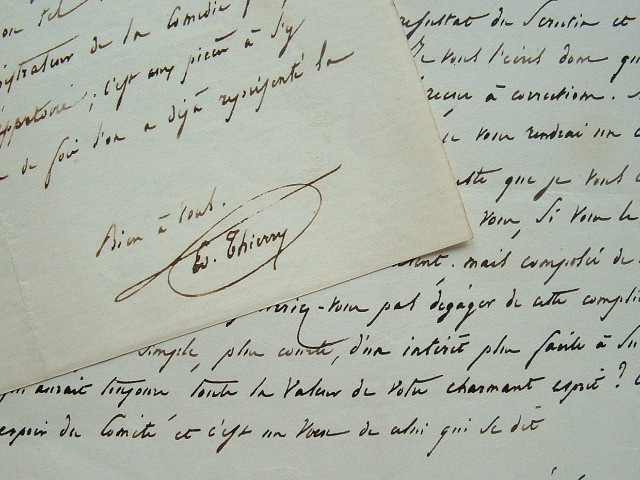 administrateur de la Comédie
; c'est aux pièces à s'y
de foi d'on a déjà représenté la
Bien à vous.
Ed. Thierry
résultat du Scrutin et
Je vous l'écris donc
à correction.
je vous rendrai un
que je vous
vous, si vous le
mais compliquée de
vous pas dégager de cette
simple, plus courte, d'un intérêt plus facile à
aurait toujours toute la valeur de votre charmant esprit ?
espoir du Comité et c'est un vœu de celui qui se dit